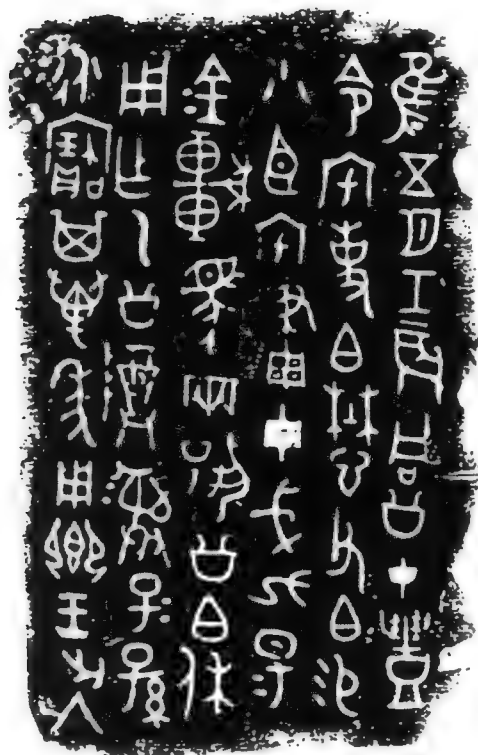 隹五月壬辰同公才豐
令宅事白懋父白易
小臣宅畫毌戈九昜
金車馬兩揚公白休
用乍乙公尊彝子子孫
永寶其萬年用鄉王出入